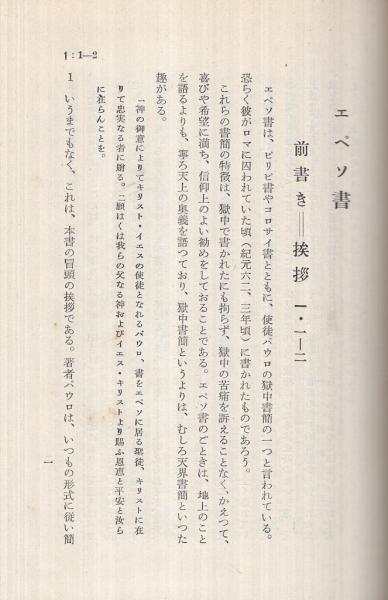 エペソ書
前書き＝挨拶　一・一―二
エペソ書は、ピリピ書やコロサイ書とともに、使徒パウロの獄中書簡の一つと言われている。
恐らく彼がロマに囚われていた頃（紀元六二、三年頃）に書かれたものであろう。
これらの書簡の特徴は、獄中で書かれたにも拘らず、獄中の苦痛を訴えることなく、かえつて、
喜びや希望に満ち、信仰上のよい勧めをしておることである。エペソ書のごときは、地上のこと
を語るよりも、寧ろ天上の奥義を語つており、獄中書簡というよりは、むしろ天界書簡といつた
趣がある。
一神の御意によりてキリスト・イエスの使徒となれるパウロ、書をエペソに居る聖徒、キリストに在
りて忠実なる者に贈る。二願はくは我らの父なる神およびイエス・キリストより賜ふ恩恵と平安と汝ら
に在らんことを。
1：1—2
1　いうまでもなく、これは、本書の冒頭の挨拶である。著者パウロは、いつもの形式に従い簡
一